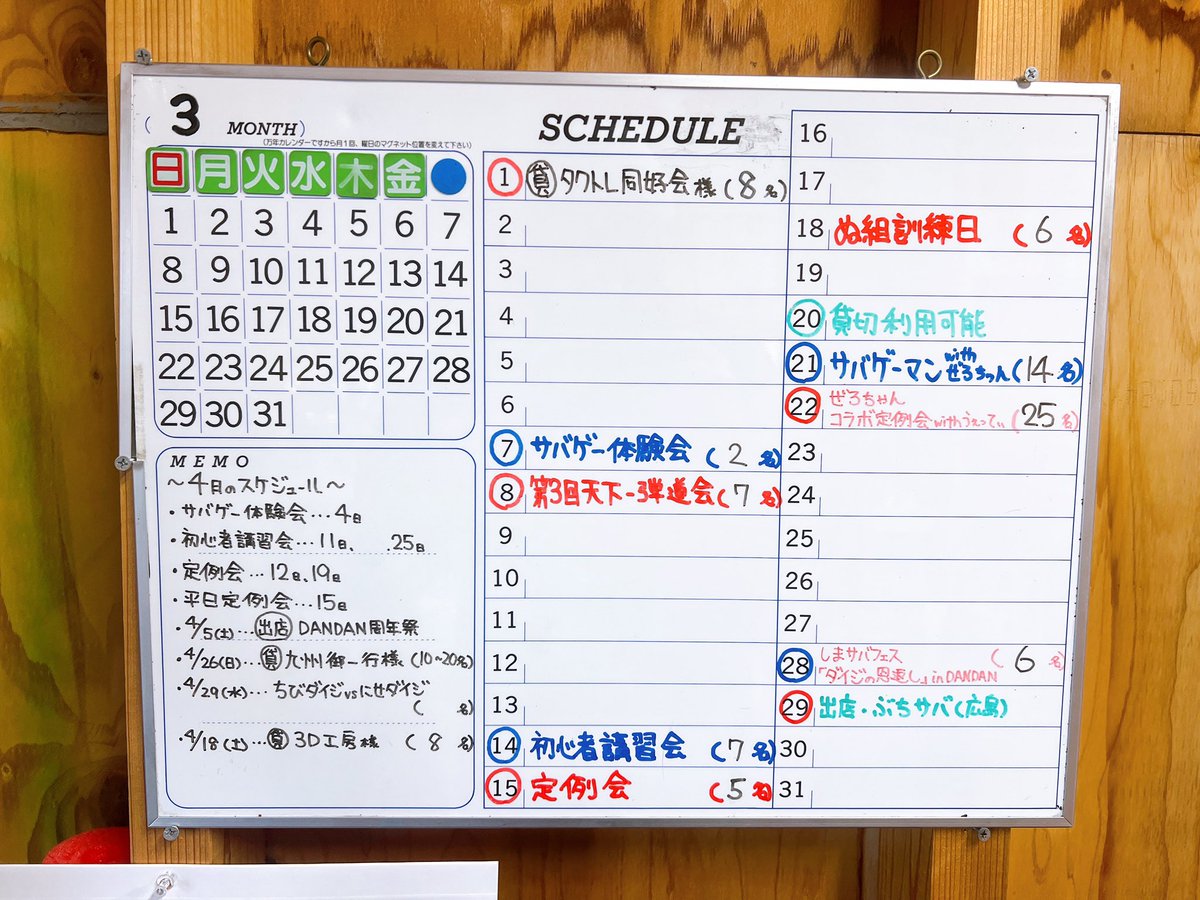 (3 MONTH)
(万年カレンダーですから月1回、曜日のマグネット位置を変えて下さい)
日 月 火 水 木 金
1 2 3 4 5 6 7
8 9 10 11 12 13 14
15 16 17 18 19 20 21
22 23 24 25 26 27 28
29 30 31
MEMO
～4月のスケジュール～
・サバゲー体験会…4日
・初心者講習会…11日、 .25日
・定例会…12日、19日
・平日定例会…15日
・4/5(土)…出店 DANDAN周年祭
・4/26(日)…貸 九州御一行様(10~20名)
・4/29(水)…ちびダイジvsにせダイジ
( 名)
・4/18(土)…貸 3D工房様 (8名)
SCHEDULE
1 貸 タクトレ同好会様(8名)
2
3
4
5
6
7 サバゲー体験会 (2名)
8 第3回天下一弾道会(7名)
9
10
11
12
13
14 初心者講習会 (7名)
15 定例会 (5名)
16
17
18 ぬ組訓練日 (6名)
19
20 貸切利用可能
21 サバゲーマン with ぜろちゃん(14名)
22 ぜろちゃん
コラボ定例会withうぇってぃ(25名)
23
24
25
26
27
28 しまサバフェス (6名)
『ダイジの恩返し』in DANDAN
29 出店・ぶちサバ(広島)
30
31